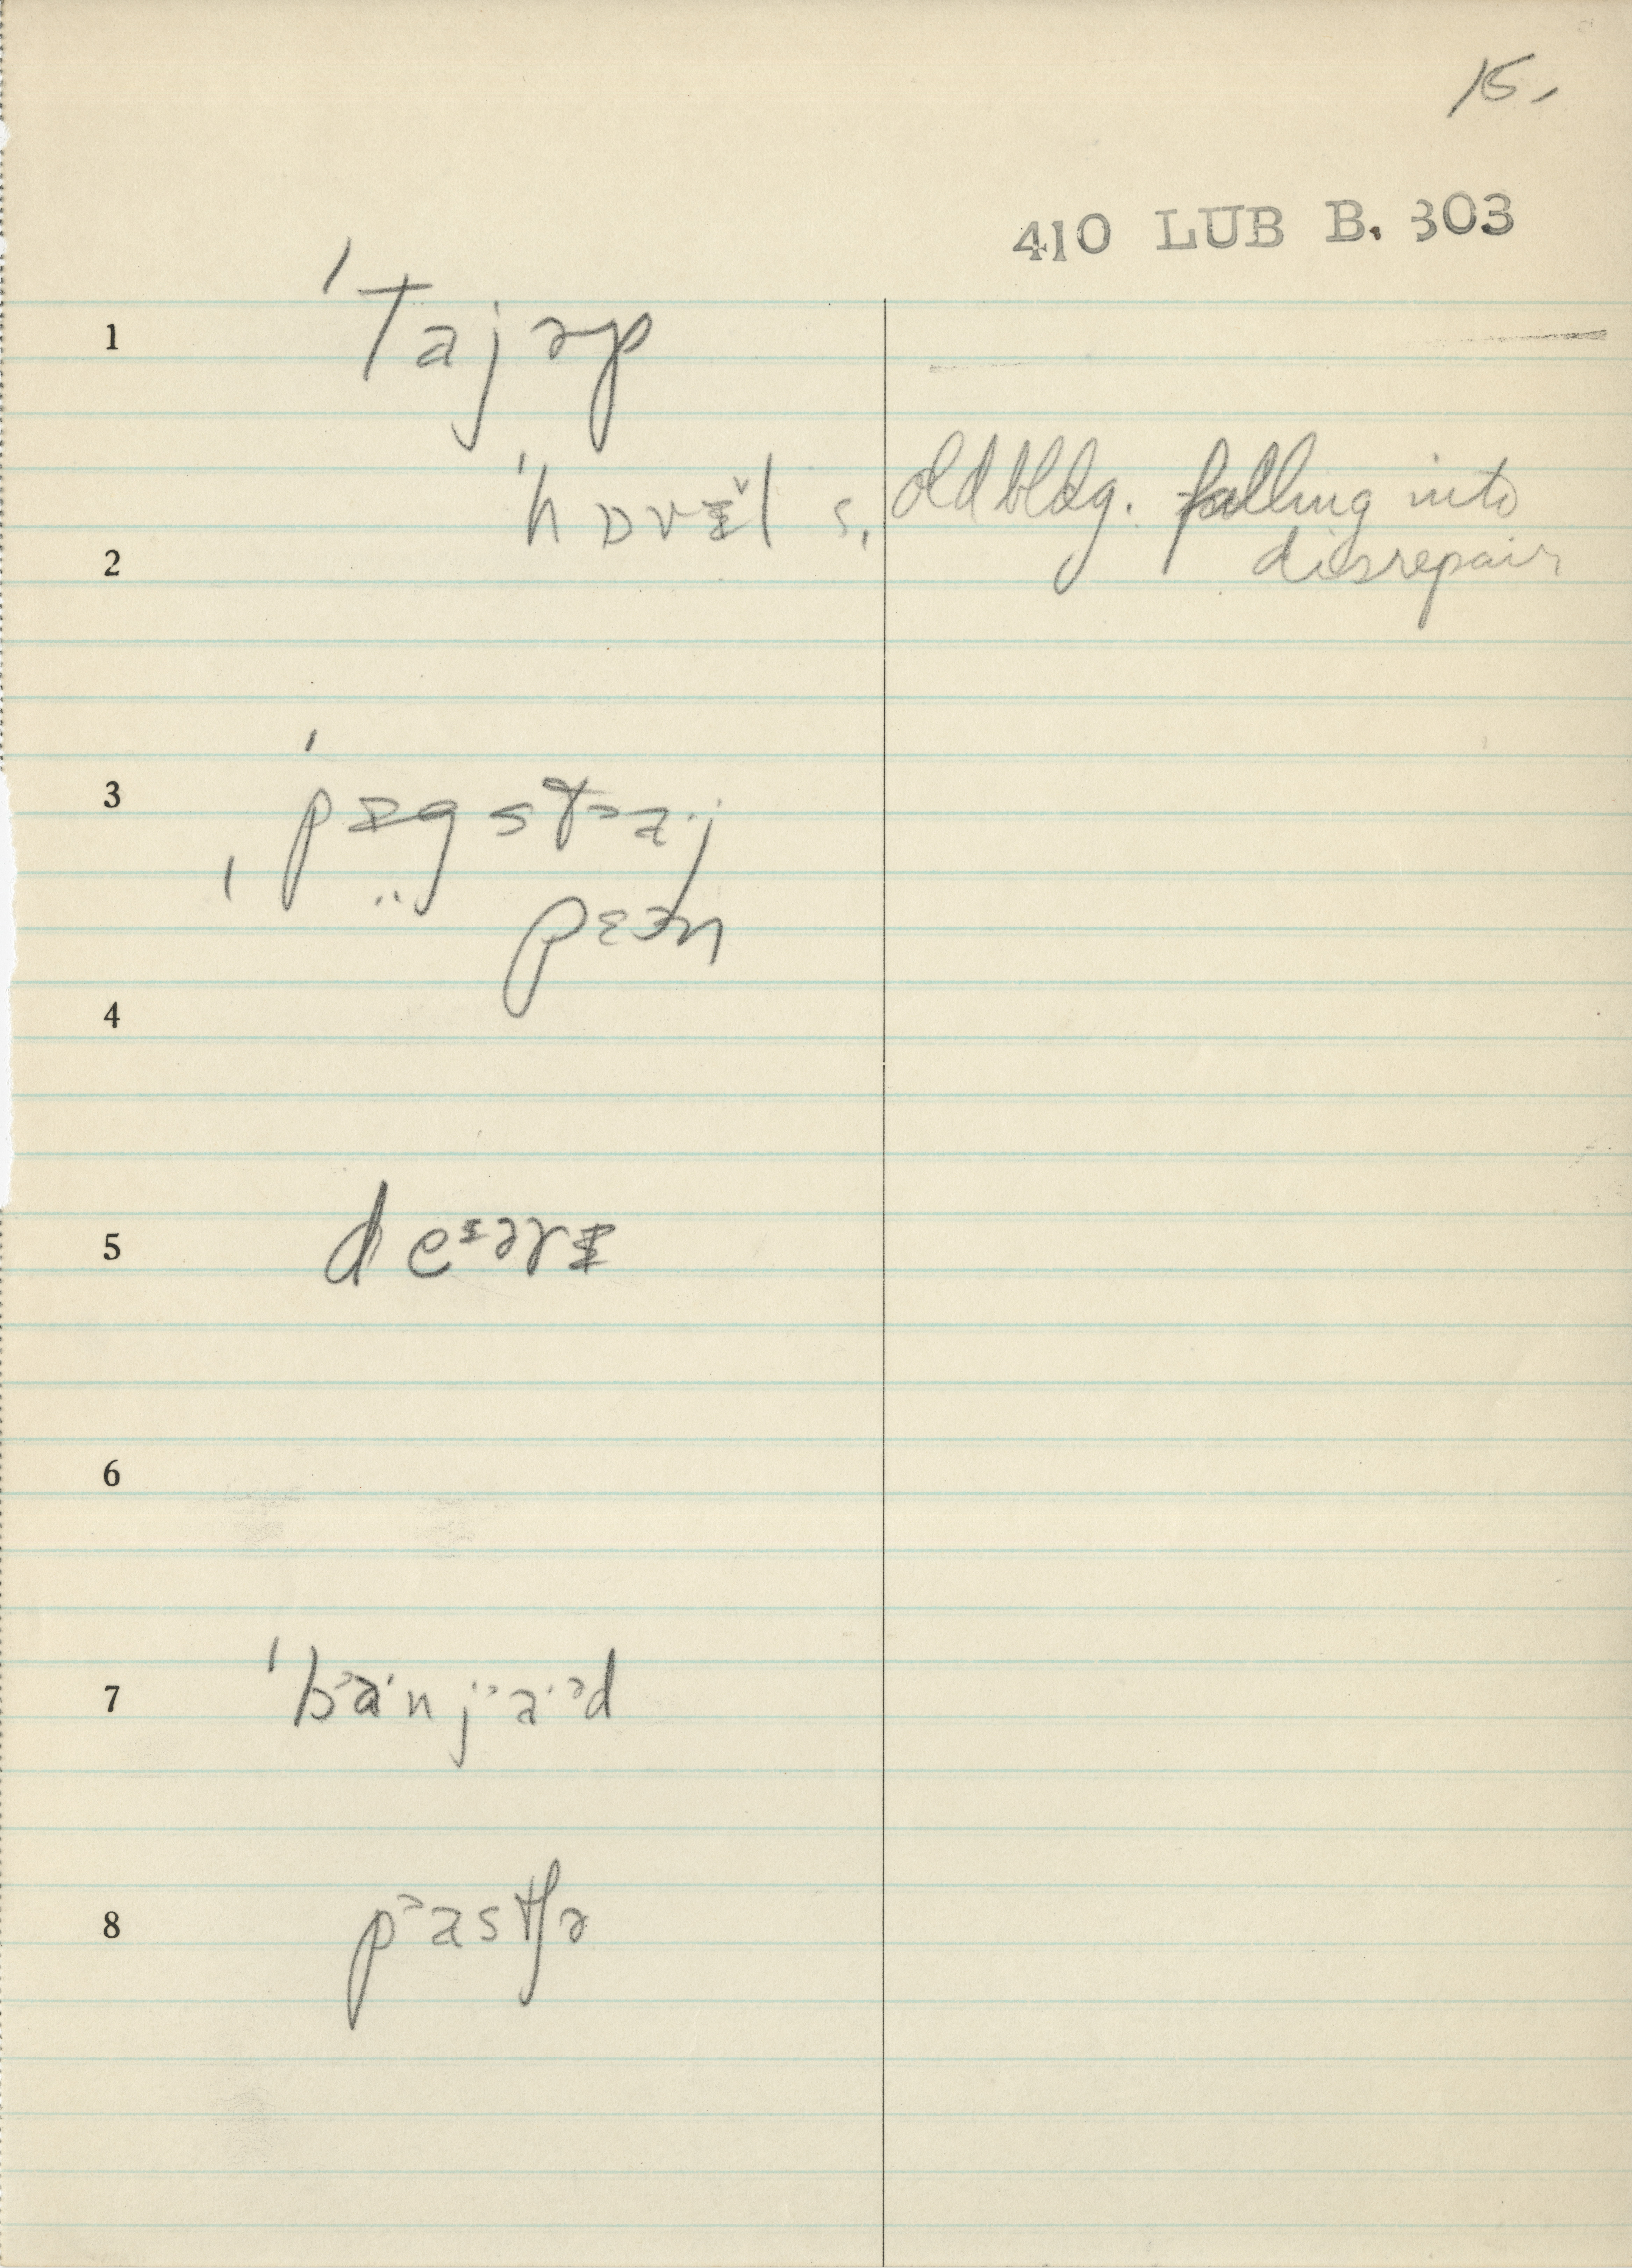 15.
410 LUB B. 303
1 ˈtajəp
ˈhɒvɪ̆l s. old bldg. falling into
2 disrepair
3 ˈpɪgstaˑj
ˌ ¨ pɛən
4
5 deᵻərɪ
6
7 ˈbᵊaˑnjᵊaˑᵊd
8 pᵊastʃə